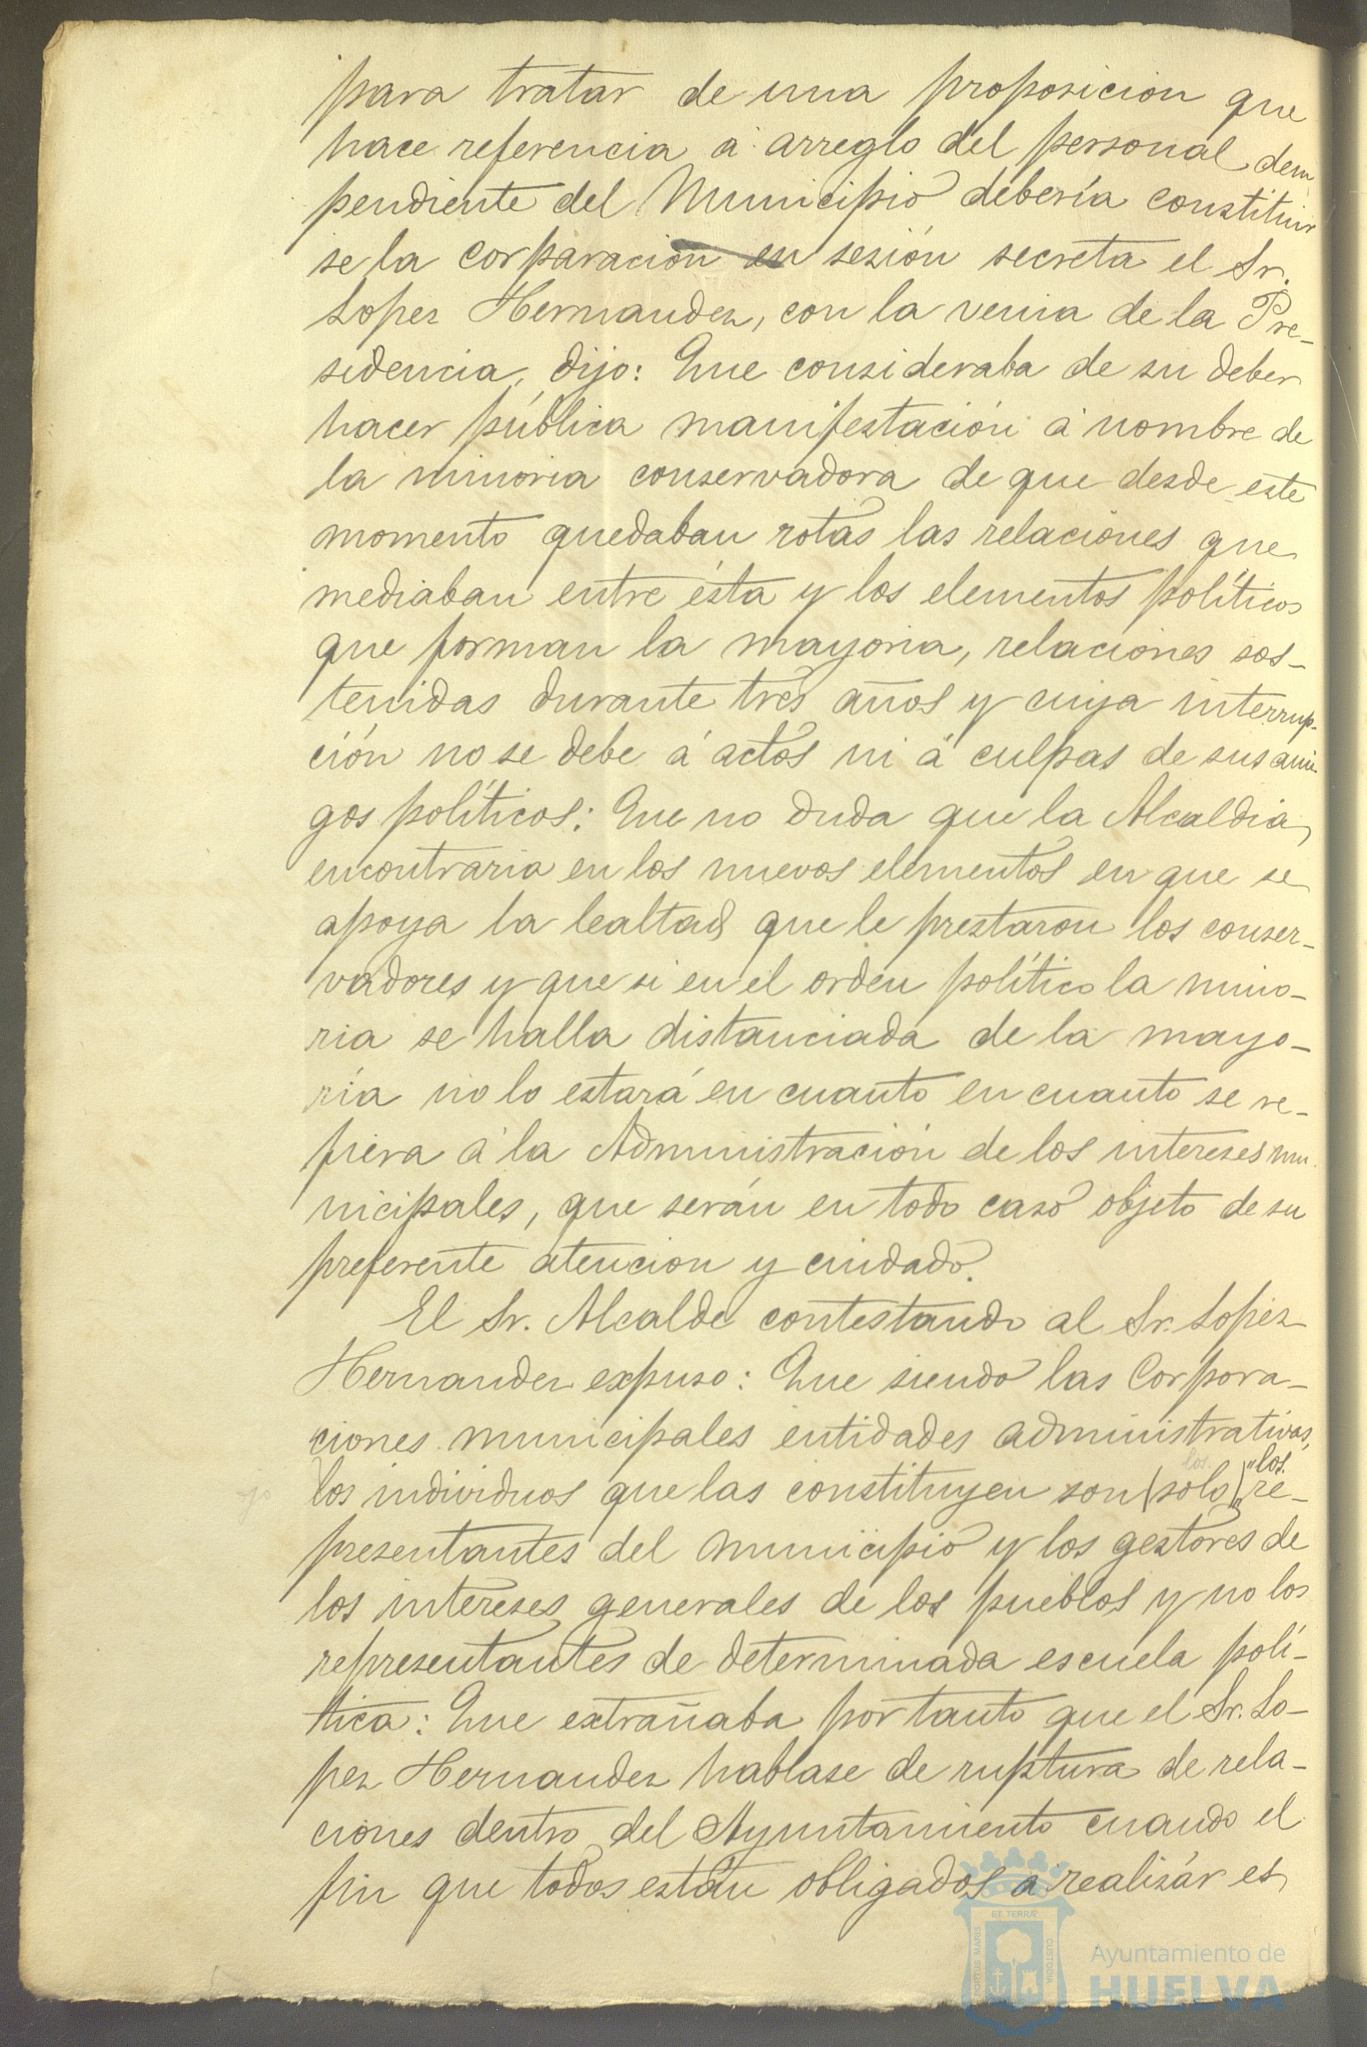 para tratar de una proposicion que
hace referencia á arreglo del personal dem
pendiente del Municipio debería constituir
se la corparación en sesión secreta el Sr.
Lopez Hernandez, con la venia de la Pre-
sidencia, dijo: Que consideraba de su deber
hacer pública manifestación á nombre de
la minoria conservadora de que desde este
momento quedaban rotas las relaciones que
mediaban entre ésta y los elementos políticos
que forman la mayoria, relaciones sos-
tenidas durante tres años y cuya interrup-
ción no se debe á actos ni á culpas de sus ami-
gos políticos: Que no duda que la Alcaldia,
encontraria en los nuevos elementos en que se
apoya la lealtad que le prestaron los conser-
vadores y que si en el orden político la mino-
ria se halla distanciada de la mayo-
ría no lo estará en cuanto en cuanto se re-
fiera á la Administración de los intereses mu-
nicipales, que serán en todo caso objeto de su
preferente atencion y cuidado.
El Sr. Alcalde contestando al Sr. Lopez
Hernandez expuso: Que siendo las Corpora-
ciones municipales entidades administrativas,
los individuos que las constituyen son (solo) "los" re-
presentantes del municipio y los gestores de
los intereses generales de los pueblos y no los
representantes de determinada escuela polí-
tica: Que extrañaba por tanto que el Sr. Lo-
pez Hernandez hablase de ruptura de rela-
ciones dentro del Ayuntamiento cuando el
fin que todos están obligados á realizár es
Ayuntamiento de
HUELVA